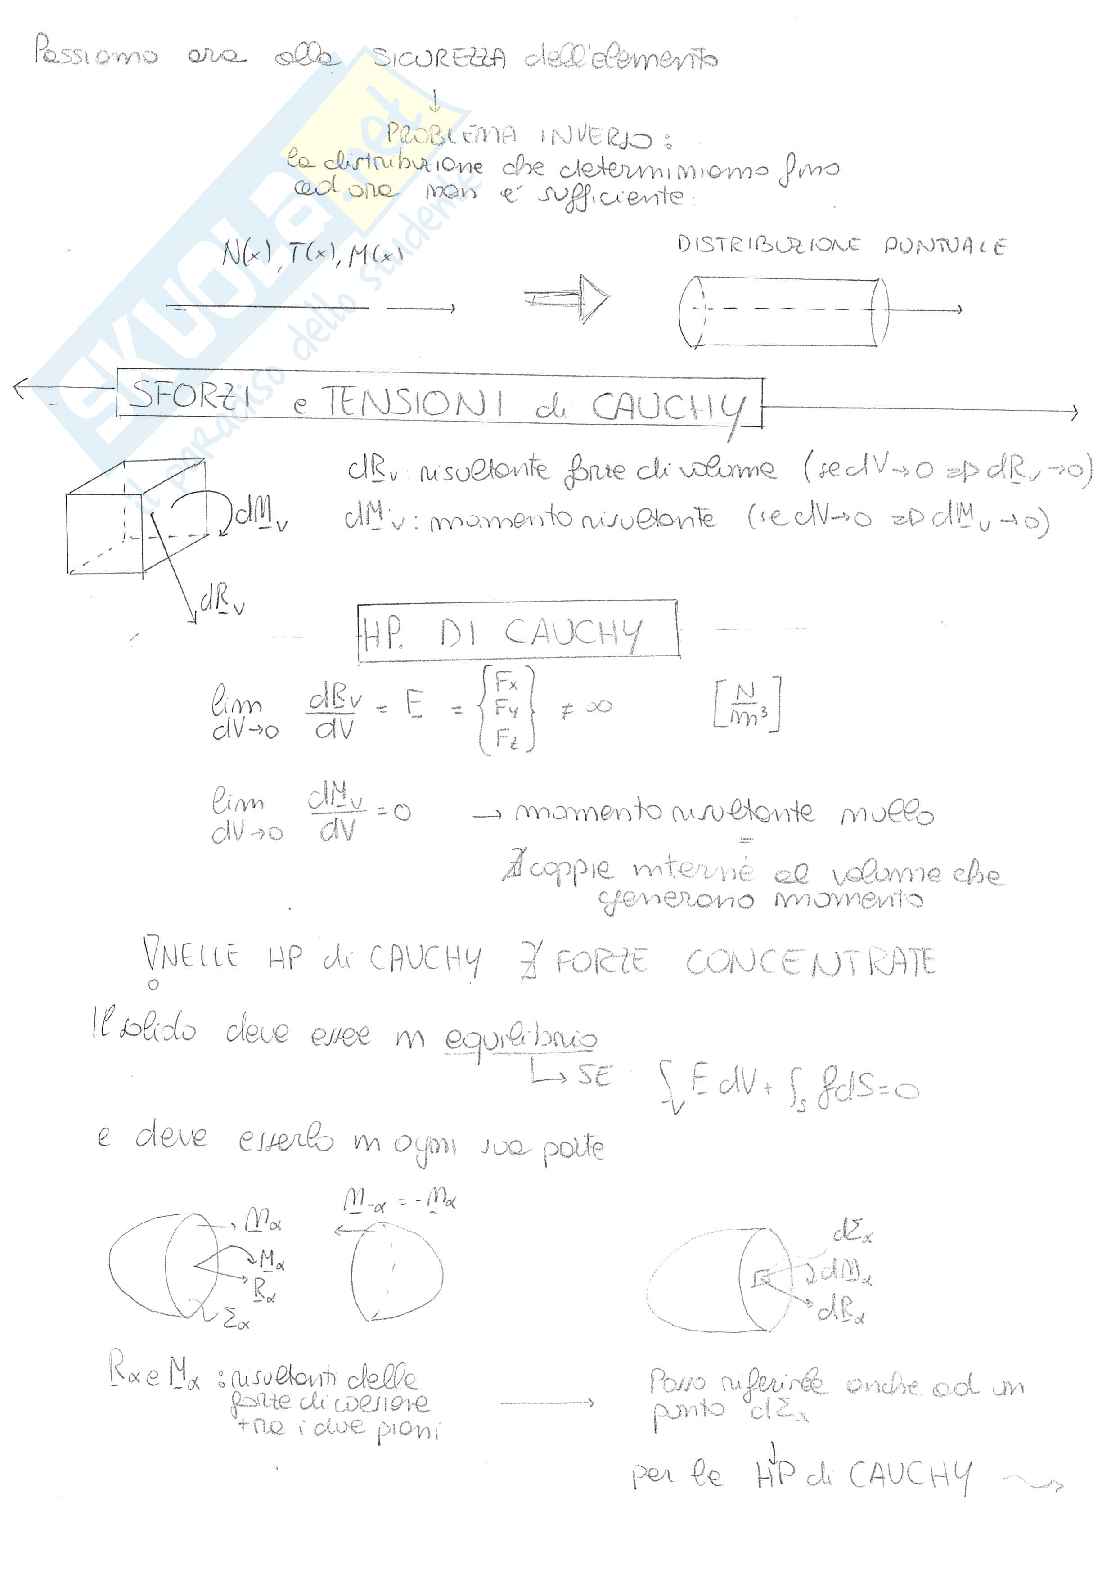 Passiamo ora alla SICUREZZA dell'elemento
↓
PROBLEMA INVERSO:
la distribuzione che determiniamo fino
ad ora non è sufficiente:
N(x), T(x), M(x)
DISTRIBUZIONE PUNTUALE
SFORZI e TENSIONI di CAUCHY
dR_v: risultante forze di volume (se dV→0 ⇒ dR_v→0)
dM_v: momento risultante (se dV→0 ⇒ dM_v→0)
dM_v
dR_v
HP. DI CAUCHY
lim dV→0 dR_v/dV = F = {Fx Fy Fz} ≠ ∞ [N/m³]
lim dV→0 dM_v/dV = 0 → momento risultante nullo
=
∄ coppie interne al volume che
generano momento
! NELLE HP di CAUCHY ∄ FORZE CONCENTRATE
Il solido deve essere in equilibrio
↳ SE ∫_V F dV + ∫_S f dS = 0
e deve esserlo in ogni sua parte
n_α
M_α
R_α
Σ_α
n_-α = -n_α
dΣ_α
dM_α
dR_α
R_α e M_α: risultanti delle
forze di coesione
tra i due piani
Posso riferirle anche ad un
punto dΣ_α
↓
per le HP di CAUCHY
SKUOLA.net
il paradiso dello studente